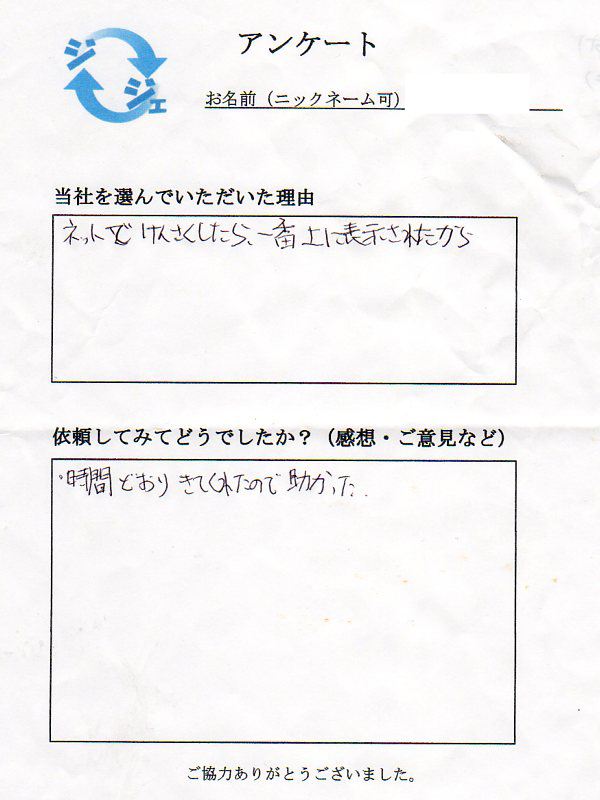 ジジェ
アンケート
お名前（ニックネーム可）
当社を選んでいただいた理由
ネットで けんさくしたら、一番上に表示されたから
依頼してみてどうでしたか？（感想・ご意見など）
・時間どおり きてくれたので 助かった．
ご協力ありがとうございました。